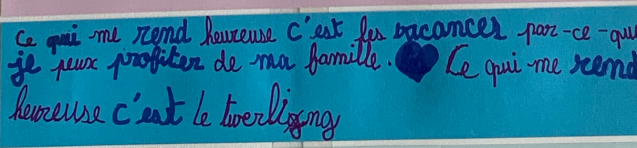 Ce qui me rend heureuse c'est les vacances par-ce-qu
je peux profiter de ma famille. Le qui me rend
heureuse c'est le twerling